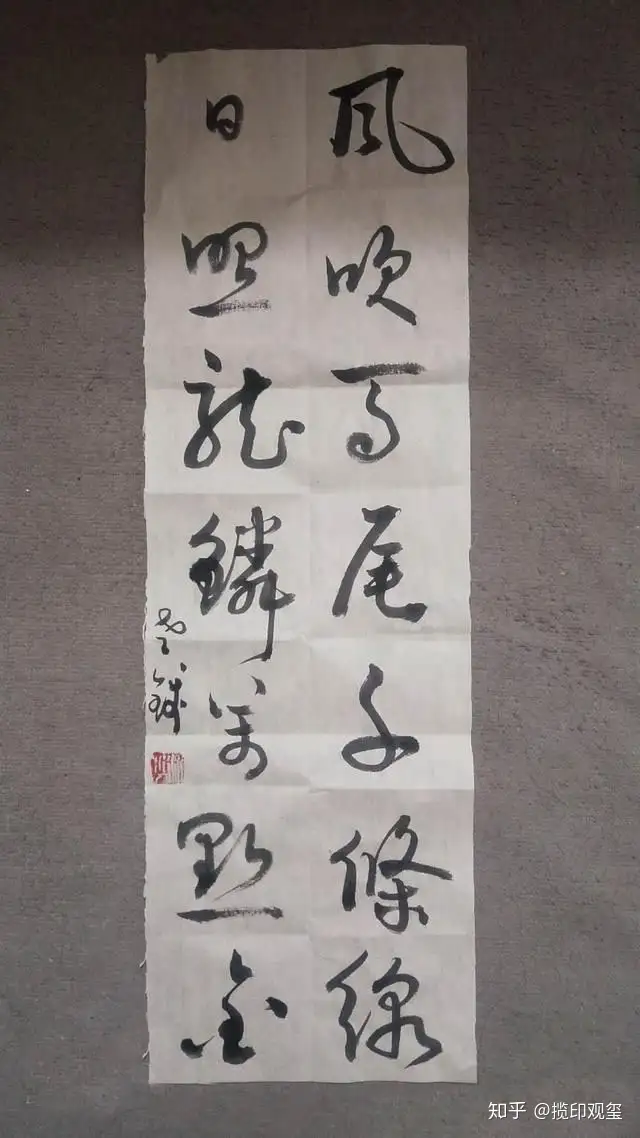 風吹馬尾千條線
日照龍鱗萬點金
知乎 @揽印观玺